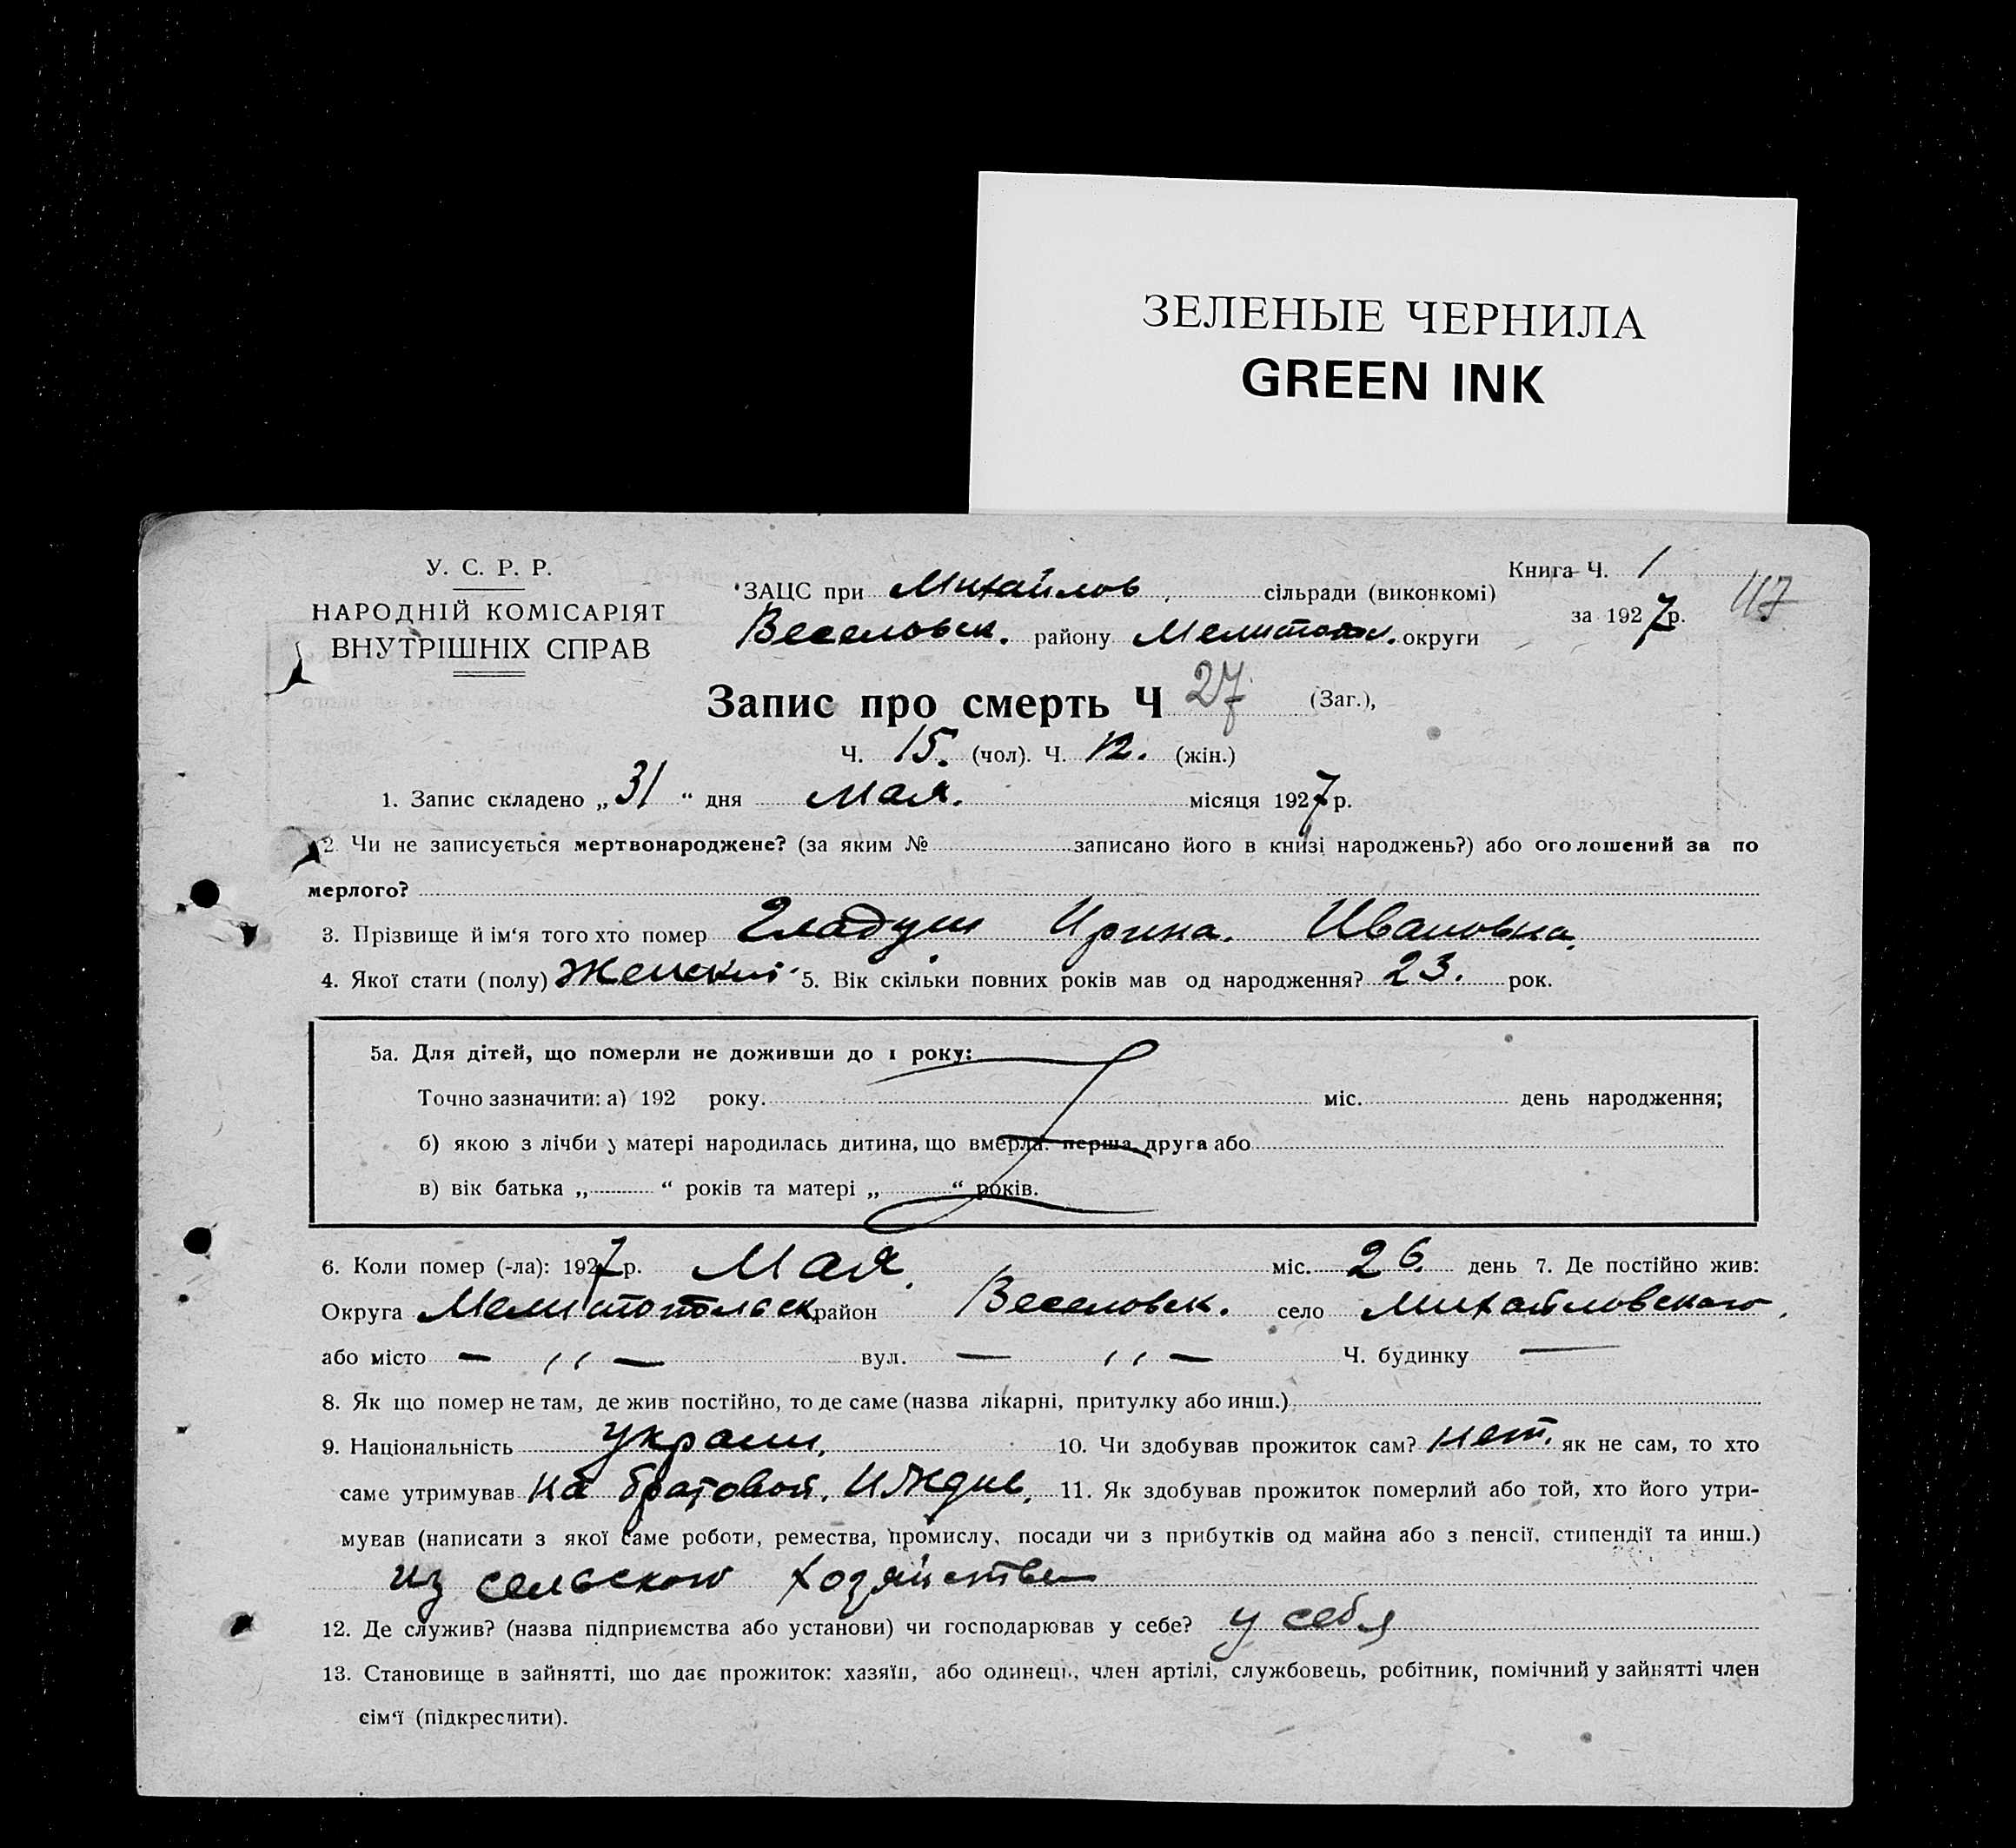 ЗЕЛЕНЫЕ ЧЕРНИЛА
GREEN INK
У. С. Р. Р.
НАРОДНІЙ КОМІСАРІЯТ
ВНУТРІШНІХ СПРАВ
ЗАЦС при Михайлов. сільради (виконкомі)
Веселовск. району Мелитопол. округи
Книга Ч. 1
за 1927 р.
117
Запис про смерть Ч 27 (Заг.),
Ч. 15. (чол). Ч. 12. (жін.)
1. Запис складено „31“ дня Мая. місяця 1927 р.
2. Чи не записується мертвонароджене? (за яким № записано його в книзі народжень?) або оголошений за по
мерлого?
3. Прізвище й ім'я того хто помер Гладуш Ирина. Ивановна.
4. Якої стати (полу) Женский 5. Вік скільки повних років мав од народження? 23. рок.
5а. Для дітей, що померли не доживши до 1 року:
Точно зазначити: а) 192 року. міс. день народження;
б) якою з лічби у матері народилась дитина, що вмерла: перша, друга або
в) вік батька „ “ років та матері „ “ років.
6. Коли помер (-ла): 1927 р. Мая. міс. 26. день 7. Де постійно жив:
Округа Мелитопольск. район Веселовск. село Михайловского.
або місто — ,, — вул. — ,, — Ч. будинку —
8. Як що помер не там, де жив постійно, то де саме (назва лікарні, притулку або инш.)
9. Національність Украин. 10. Чи здобував прожиток сам? нет. як не сам, то хто
саме утримував на братовой. иждив. 11. Як здобував прожиток померлий або той, хто його утри-
мував (написати з якої саме роботи, ремества, промислу, посади чи з прибутків од майна або з пенсії, стипендії та инш.)
из сельского хозяйства
12. Де служив? (назва підприємства або установи) чи господарював у себе? у себя
13. Становище в зайнятті, що дає прожиток: хазяїн, або одинець, член артілі, службовець, робітник, помічний у зайнятті член
сім'ї (підкреслити).